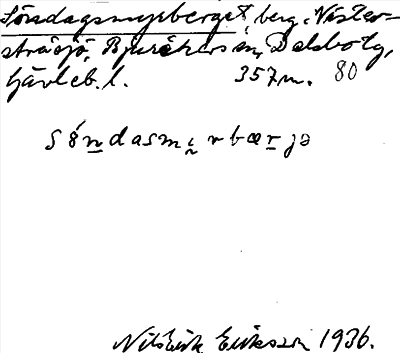 Söndagsmyrberget, berg, Väster-
stråsjö, Bjuråkers sn, Delsbo tg,
Gävleb. l. 357 m. 80
Nils Erik Eriksson 1936.